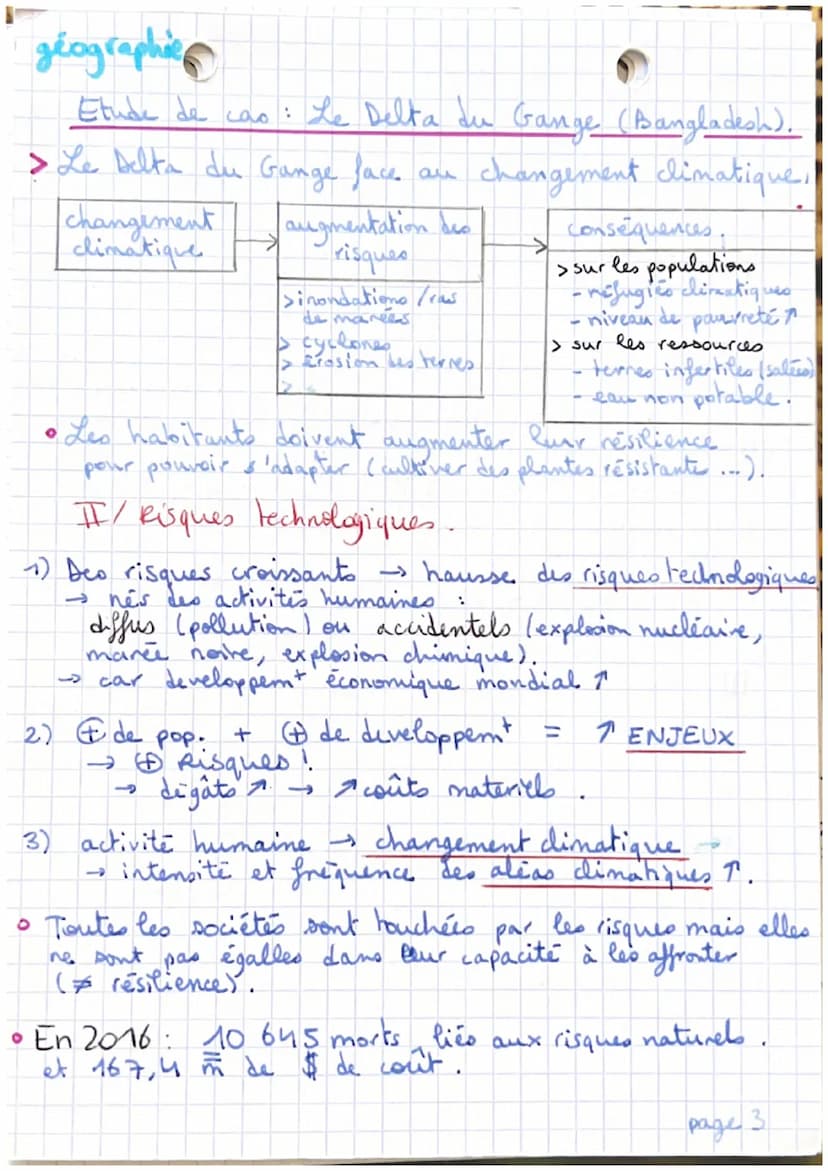 géographie
Etude de cas : Le Delta du Gange (Bangladesh).
> Le Delta du Gange face au changement climatique.
changement
climatique
augmentation des
risques
> inondations / ras
de marées
> cyclones
> Érosion des terres
>
conséquences.
> sur les populations
- réfugiés climatiques
- niveau de pauvreté ↑
> sur les ressources
- terres infertiles (salées)
- eau non potable.
• Les habitants doivent augmenter leur résilience
pour pouvoir s'adapter (cultiver des plantes résistante ...).
II/ Risques technologiques.
1) Des risques croissants → hausse des risques technologiques
→ nés des activités humaines :
diffus (pollution) ou accidentels (explosion nucléaire,
marée noire, explosion chimique).
→ car developpemt économique mondial ↑
2) ⊕ de pop. + ⊕ de developpemt = ↑ ENJEUX
→ ⊕ Risques !
→ dégâts ↗ → ↗ coûts materiels.
3) activité humaine → changement climatique →
→ intensité et fréquence des aléas climatiques ↑.
• Toutes les sociétés sont touchées par les risques mais elles
ne sont pas égalles dans leur capacité à les affronter
(≠ résilience).
• En 2016 : 10 645 morts liés aux risques naturels.
et 167,4 m de $ de coût.
page 3